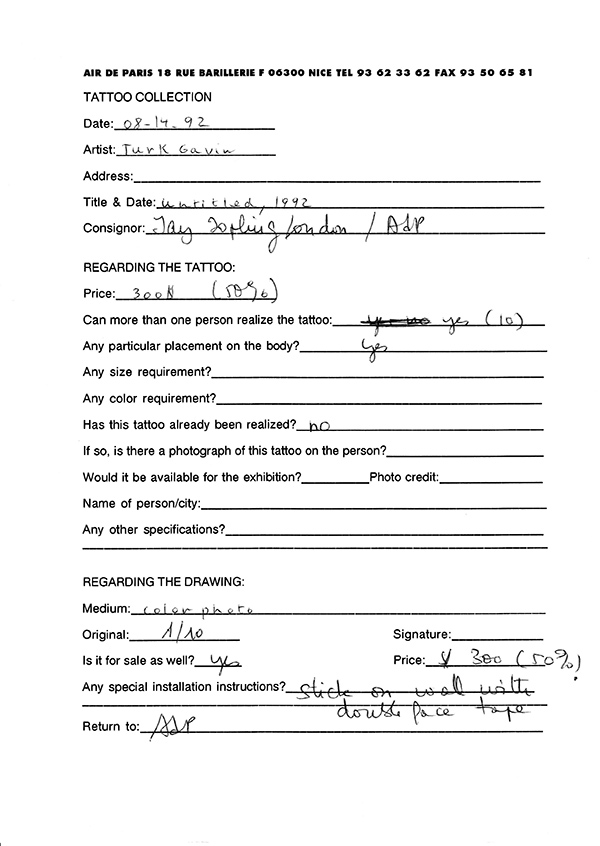 AIR DE PARIS 18 RUE BARILLERIE F 06300 NICE TEL 93 62 33 62 FAX 93 50 65 81
TATTOO COLLECTION
Date: 08-14-92
Artist: Turk Gavin
Address:
Title & Date: untitled, 1992
Consignor: Jay Jopling London / AdP
REGARDING THE TATTOO:
Price: 300 (50%)
Can more than one person realize the tattoo: yes (10)
Any particular placement on the body? yes
Any size requirement?
Any color requirement?
Has this tattoo already been realized? no
If so, is there a photograph of this tattoo on the person?
Would it be available for the exhibition? Photo credit:
Name of person/city:
Any other specifications?
REGARDING THE DRAWING:
Medium: color photo
Original: 1/10 Signature:
Is it for sale as well? yes Price: 300 (50%)
Any special installation instructions? stick on wall with
double face tape
Return to: AdP